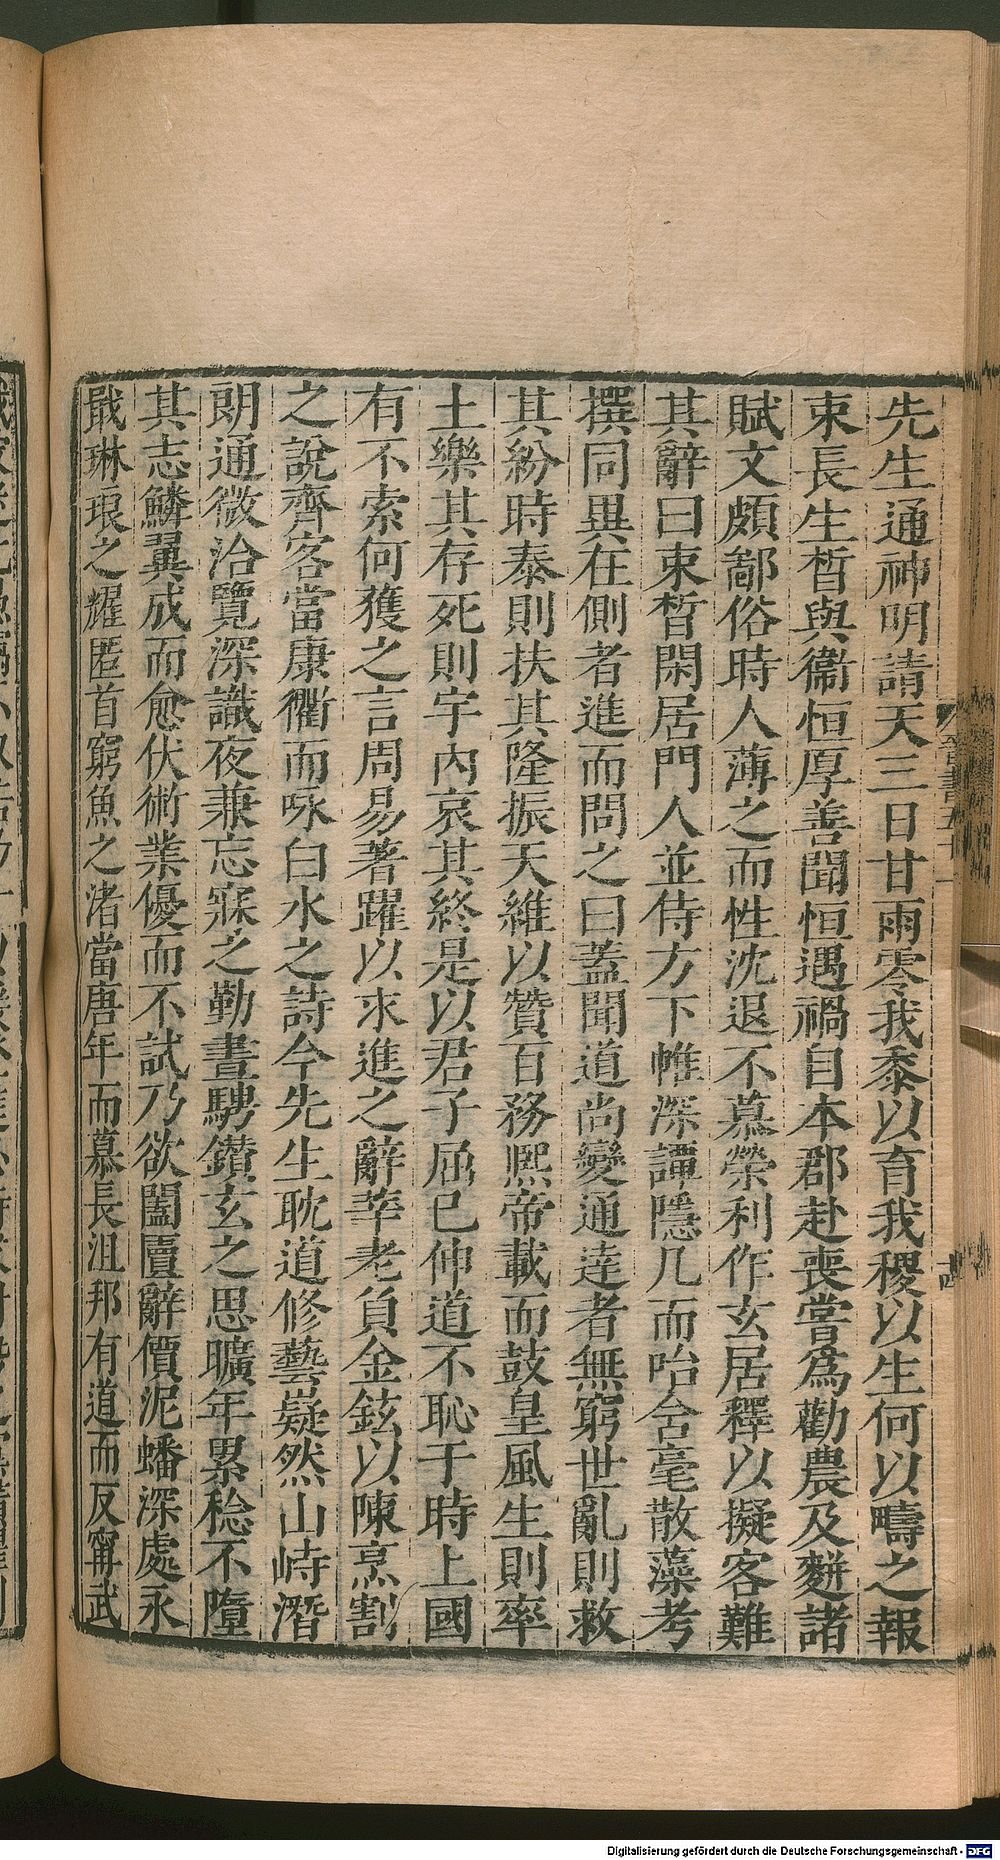 先生通神明請天三日甘雨零我黍以育我稷以生何以疇之報
束長生晳與衞恒厚善聞恒遇禍自本郡赴喪嘗爲勸農及麪諸
賦文頗鄙俗時人薄之而性沈退不慕榮利作玄居釋以擬客難
其辭曰束晳閑居門人並侍方下帷深譚隱几而咍含毫散藻考
撰同異在側者進而問之曰蓋聞道尚變通達者無窮世亂則救
其紛時泰則扶其隆振天維以贊百務熈帝載而鼓皇風生則率
土樂其存死則宇內哀其終是以君子屈已伸道不恥于時上國
有不索何獲之言周易著躍以求進之辭莘老負金鉉以陳烹割
之說齊客當康衢而咏白水之詩今先生耽道修藝嶷然山峙潛
朗通微洽覽深識夜兼忘寐之勤晝騁鑽玄之思曠年累稔不墮
其志鱗翼成而愈伏術業優而不試乃欲闔匵辭價泥蟠深處永
戢琳琅之耀匿首窮魚之渚當唐年而慕長沮邦有道而反甯武
晉書五十一
Digitalisierung gefördert durch die Deutsche Forschungsgemeinschaft - DFG